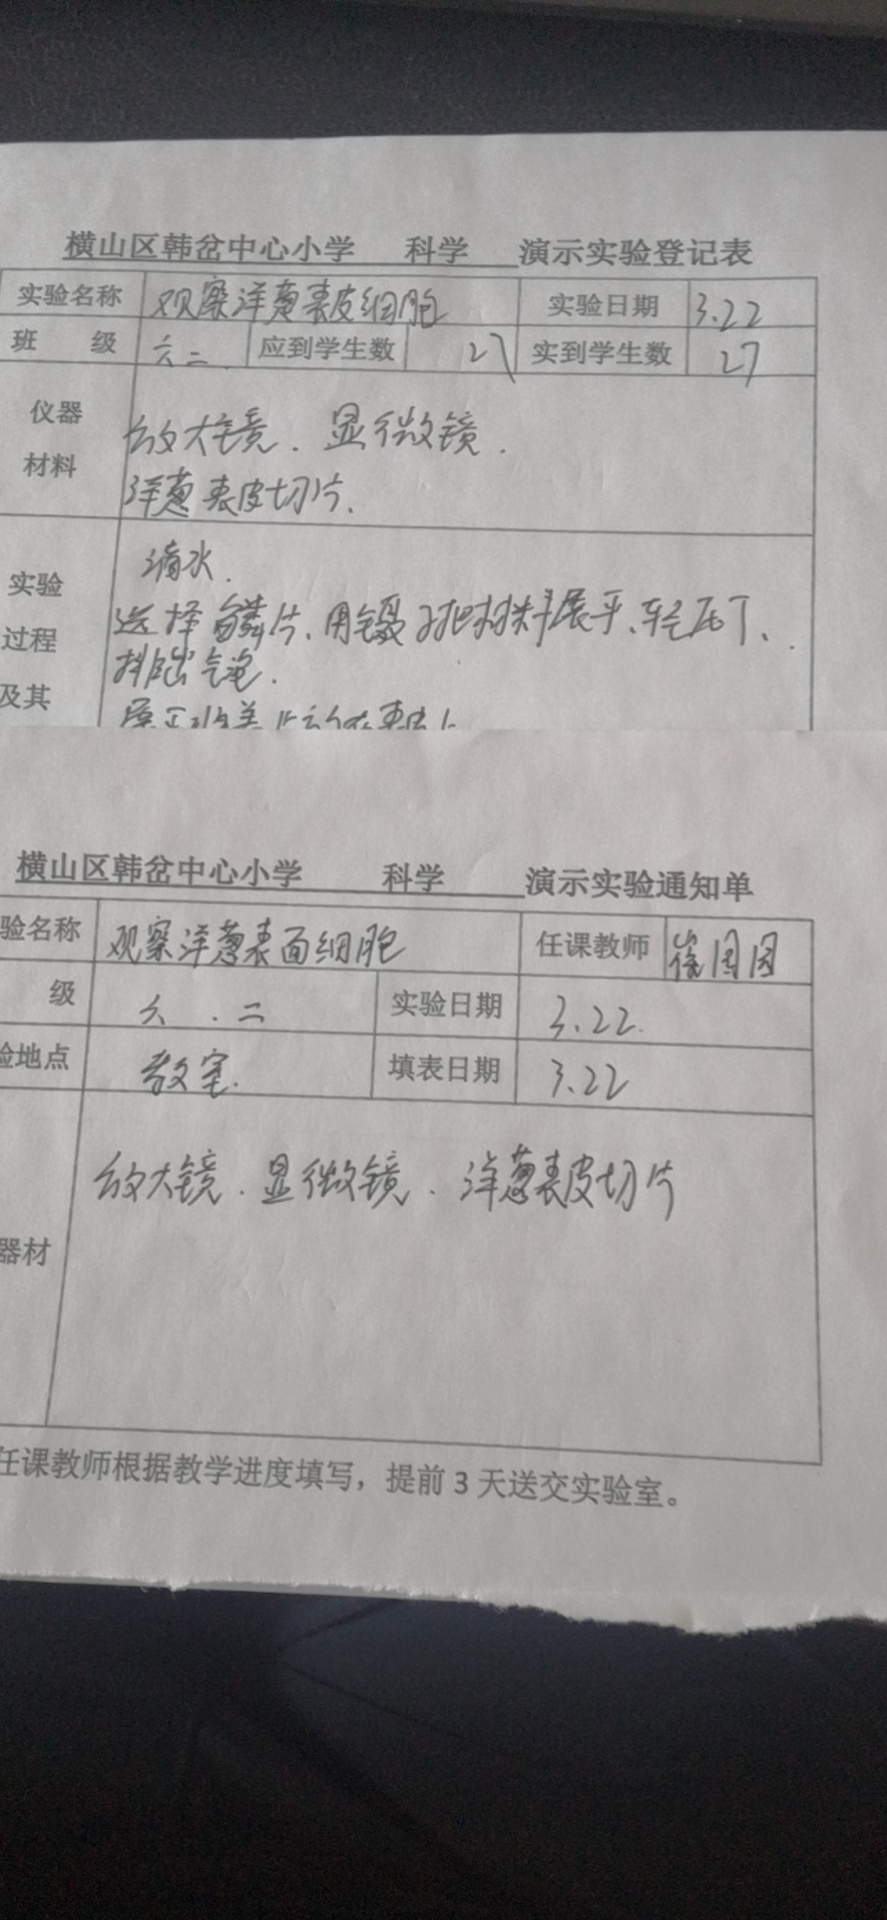 横山区韩岔中心小学 科学 演示实验登记表
实验名称 观察洋葱表皮细胞 实验日期 3.22
班 级 六二 应到学生数 27 实到学生数 27
仪器 放大镜、显微镜.
材料 洋葱表皮切片.
滴水.
实验
选择鳞片、用镊子把材料展平、轻压下、
过程
排出气泡.
及其
横山区韩岔中心小学 科学 演示实验通知单
验名称 观察洋葱表面细胞 任课教师
级 六.二 实验日期 3.22.
验地点 教室. 填表日期 3.22
放大镜.显微镜.洋葱表皮切片
器材
任课教师根据教学进度填写，提前 3 天送交实验室。